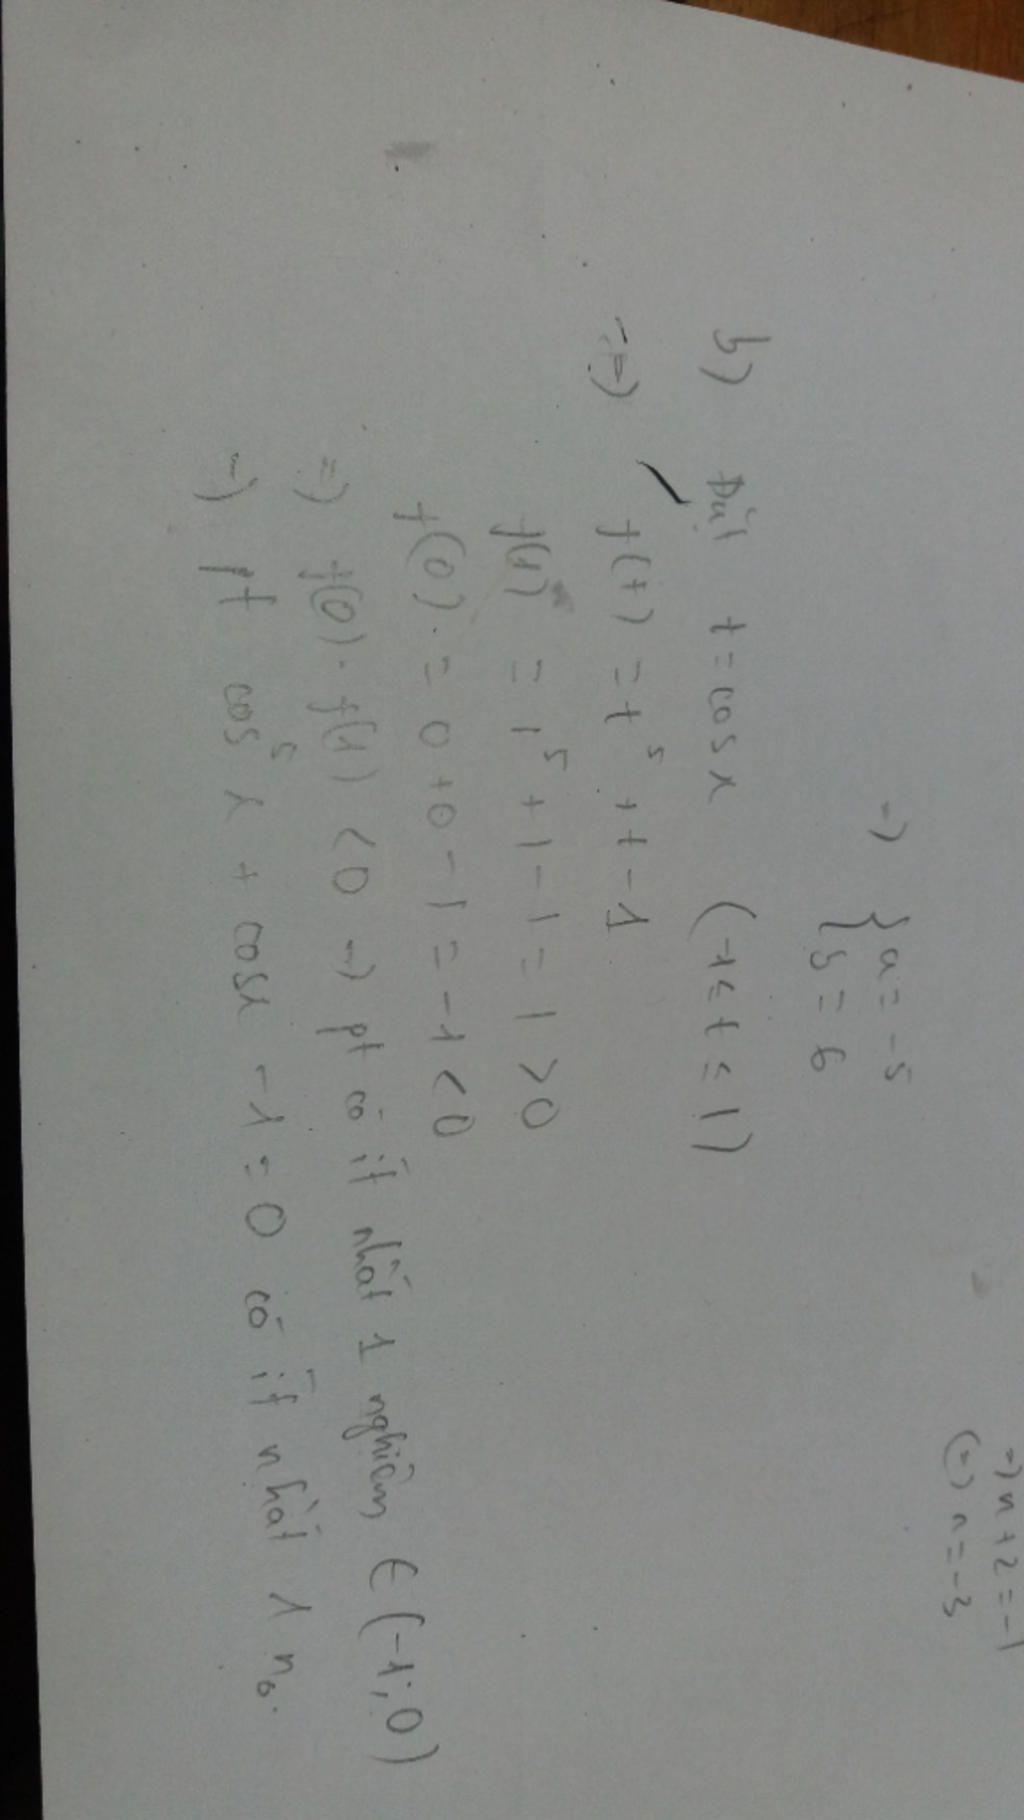 =) n+2=-1
(=) n=-3
=) { a=-5
b=6
b) Đặt t=cosx (-1≤t≤1)
=) f(t) = t⁵ + t - 1
f(1) = 1⁵ + 1 - 1 = 1 > 0
f(0) = 0 + 0 - 1 = -1 < 0
=) f(0). f(1) < 0 =) pt có ít nhất 1 nghiệm ∈ (-1; 0)
=) pt cos⁵x + cosx - 1 = 0 có ít nhất 1 n₀.